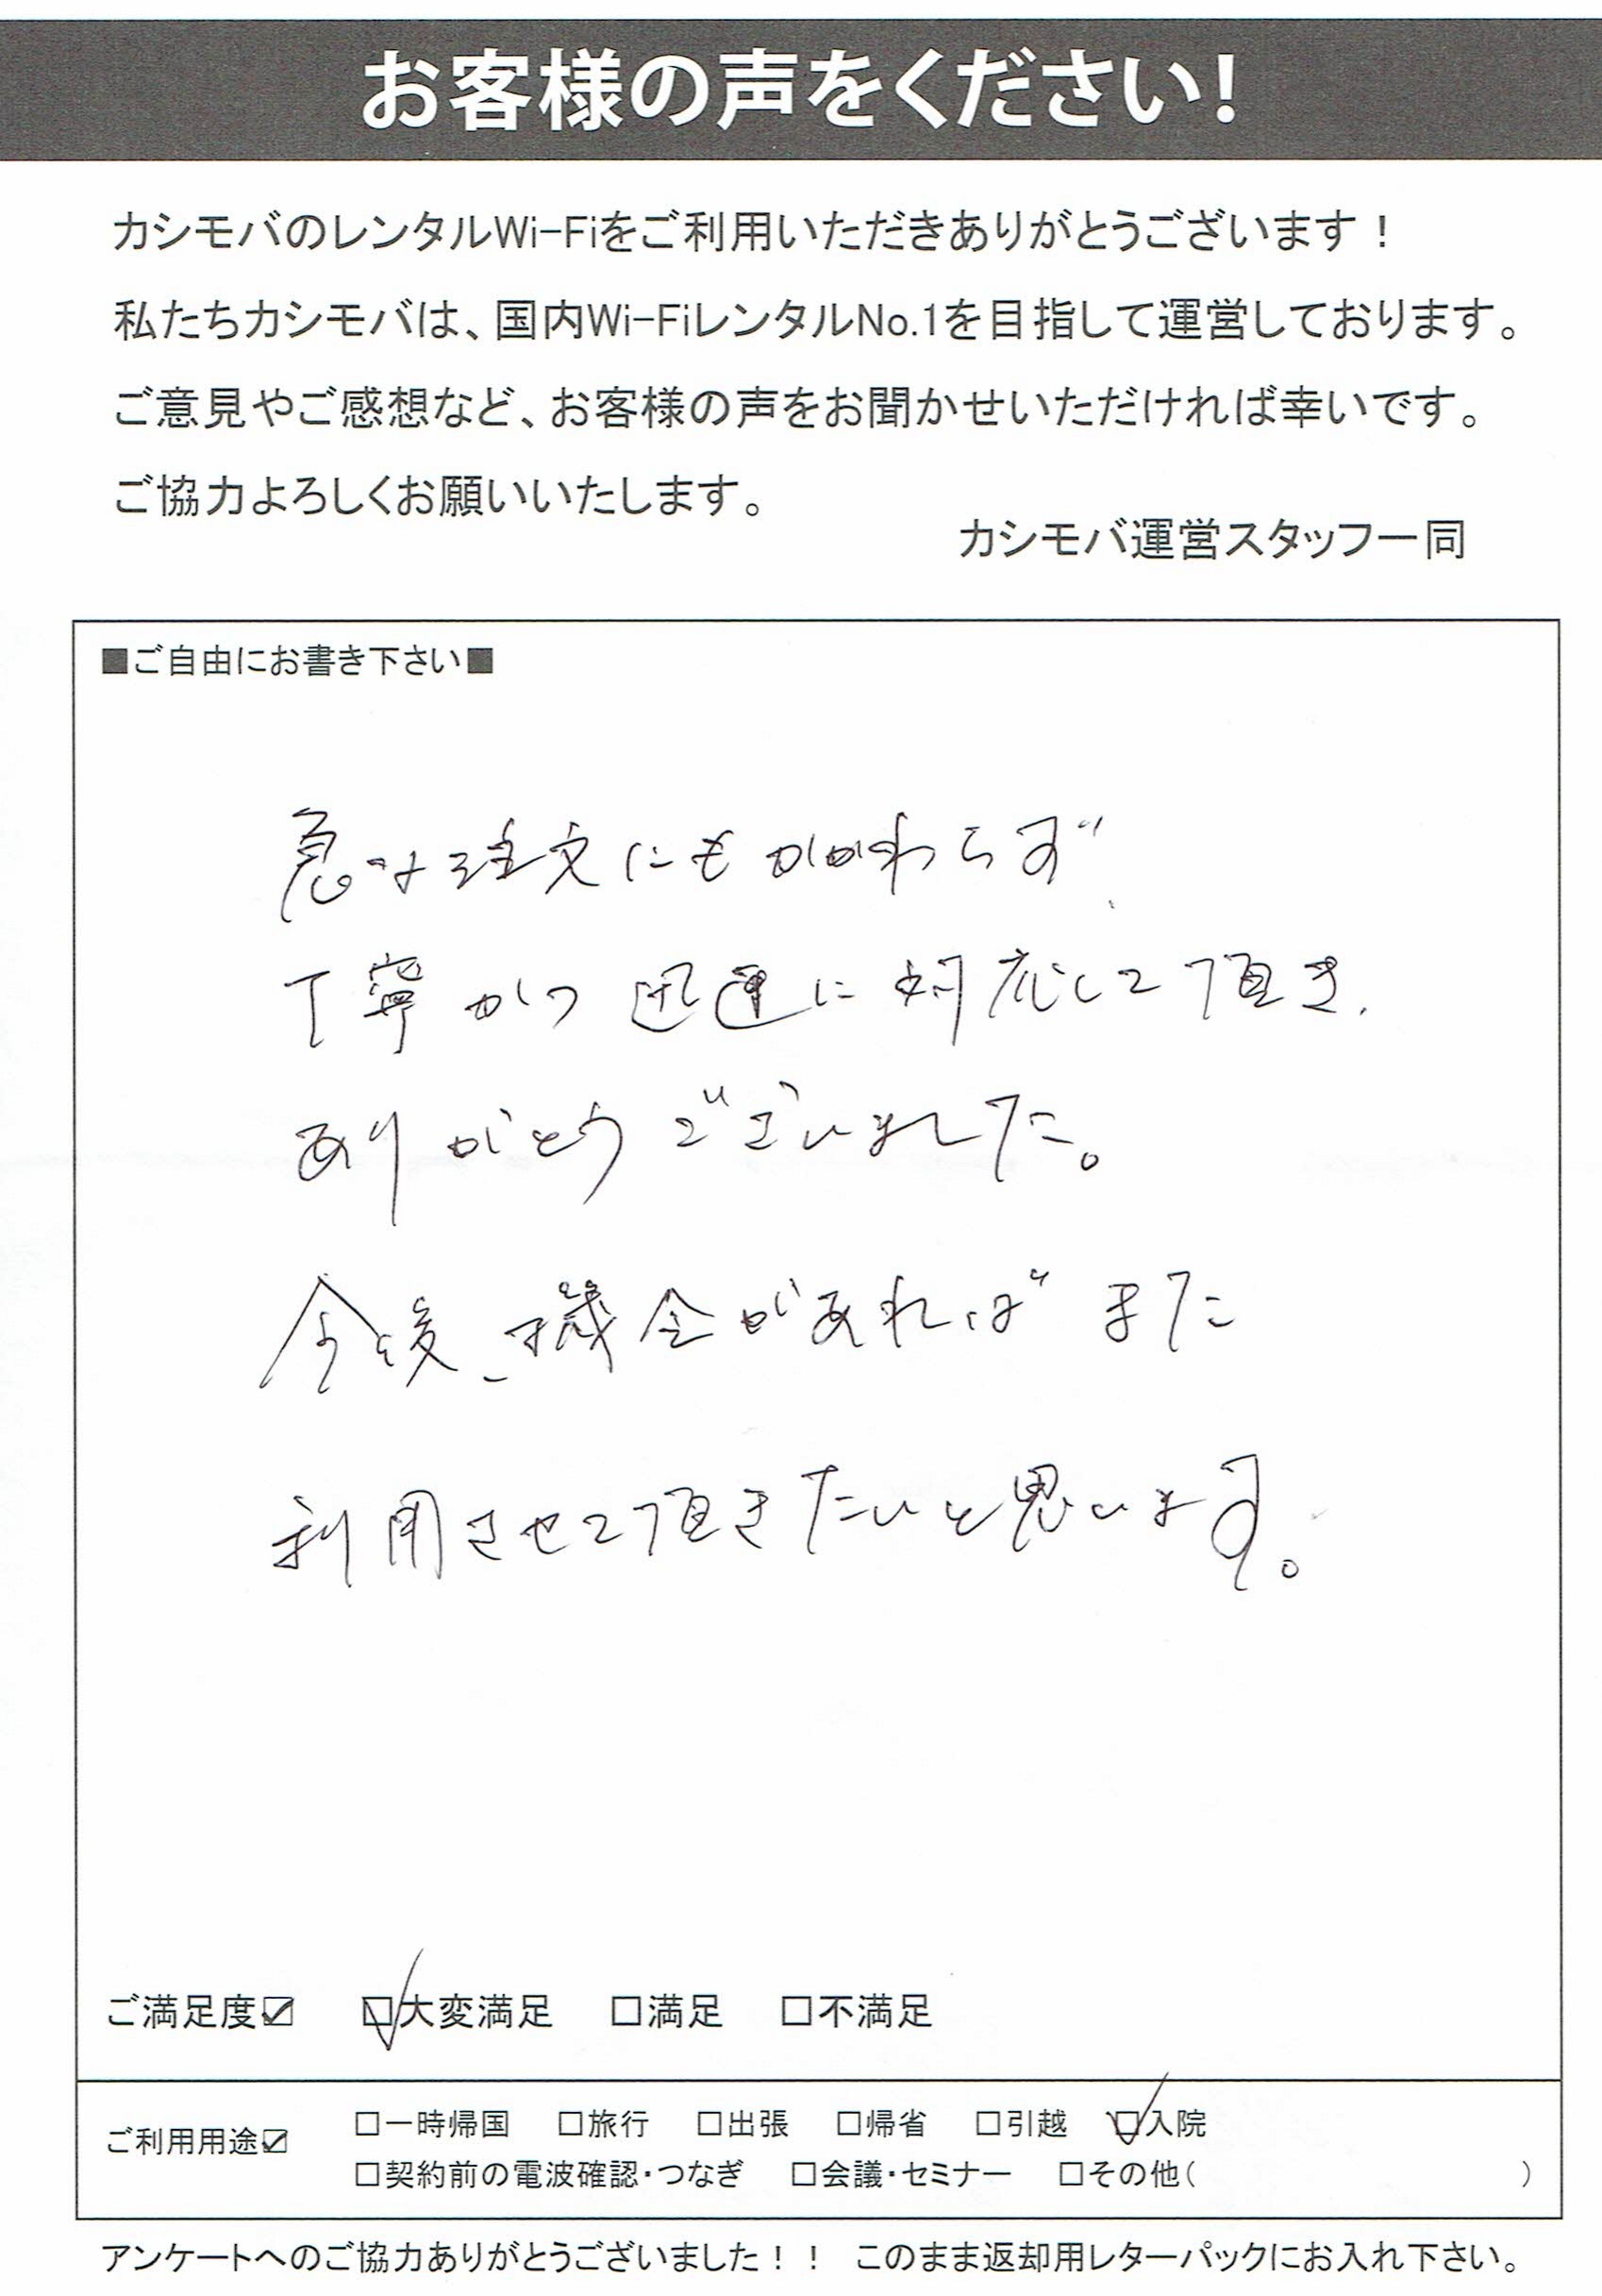 お客様の声をください!
カシモバのレンタルWi-Fiをご利用いただきありがとうございます！
私たちカシモバは、国内Wi-FiレンタルNo.1を目指して運営しております。
ご意見やご感想など、お客様の声をお聞かせいただければ幸いです。
ご協力よろしくお願いいたします。
カシモバ運営スタッフ一同
■ご自由にお書き下さい■
急な注文にもかかわらず、
丁寧かつ迅速に対応して頂き、
ありがとうございました。
今後、機会があれば また
利用させて頂きたいと思います。
ご満足度☑ ☑大変満足 □満足 □不満足
ご利用用途☑ □一時帰国 □旅行 □出張 □帰省 □引越 ☑入院
□契約前の電波確認・つなぎ □会議・セミナー □その他( )
アンケートへのご協力ありがとうございました！！ このまま返却用レターパックにお入れ下さい。